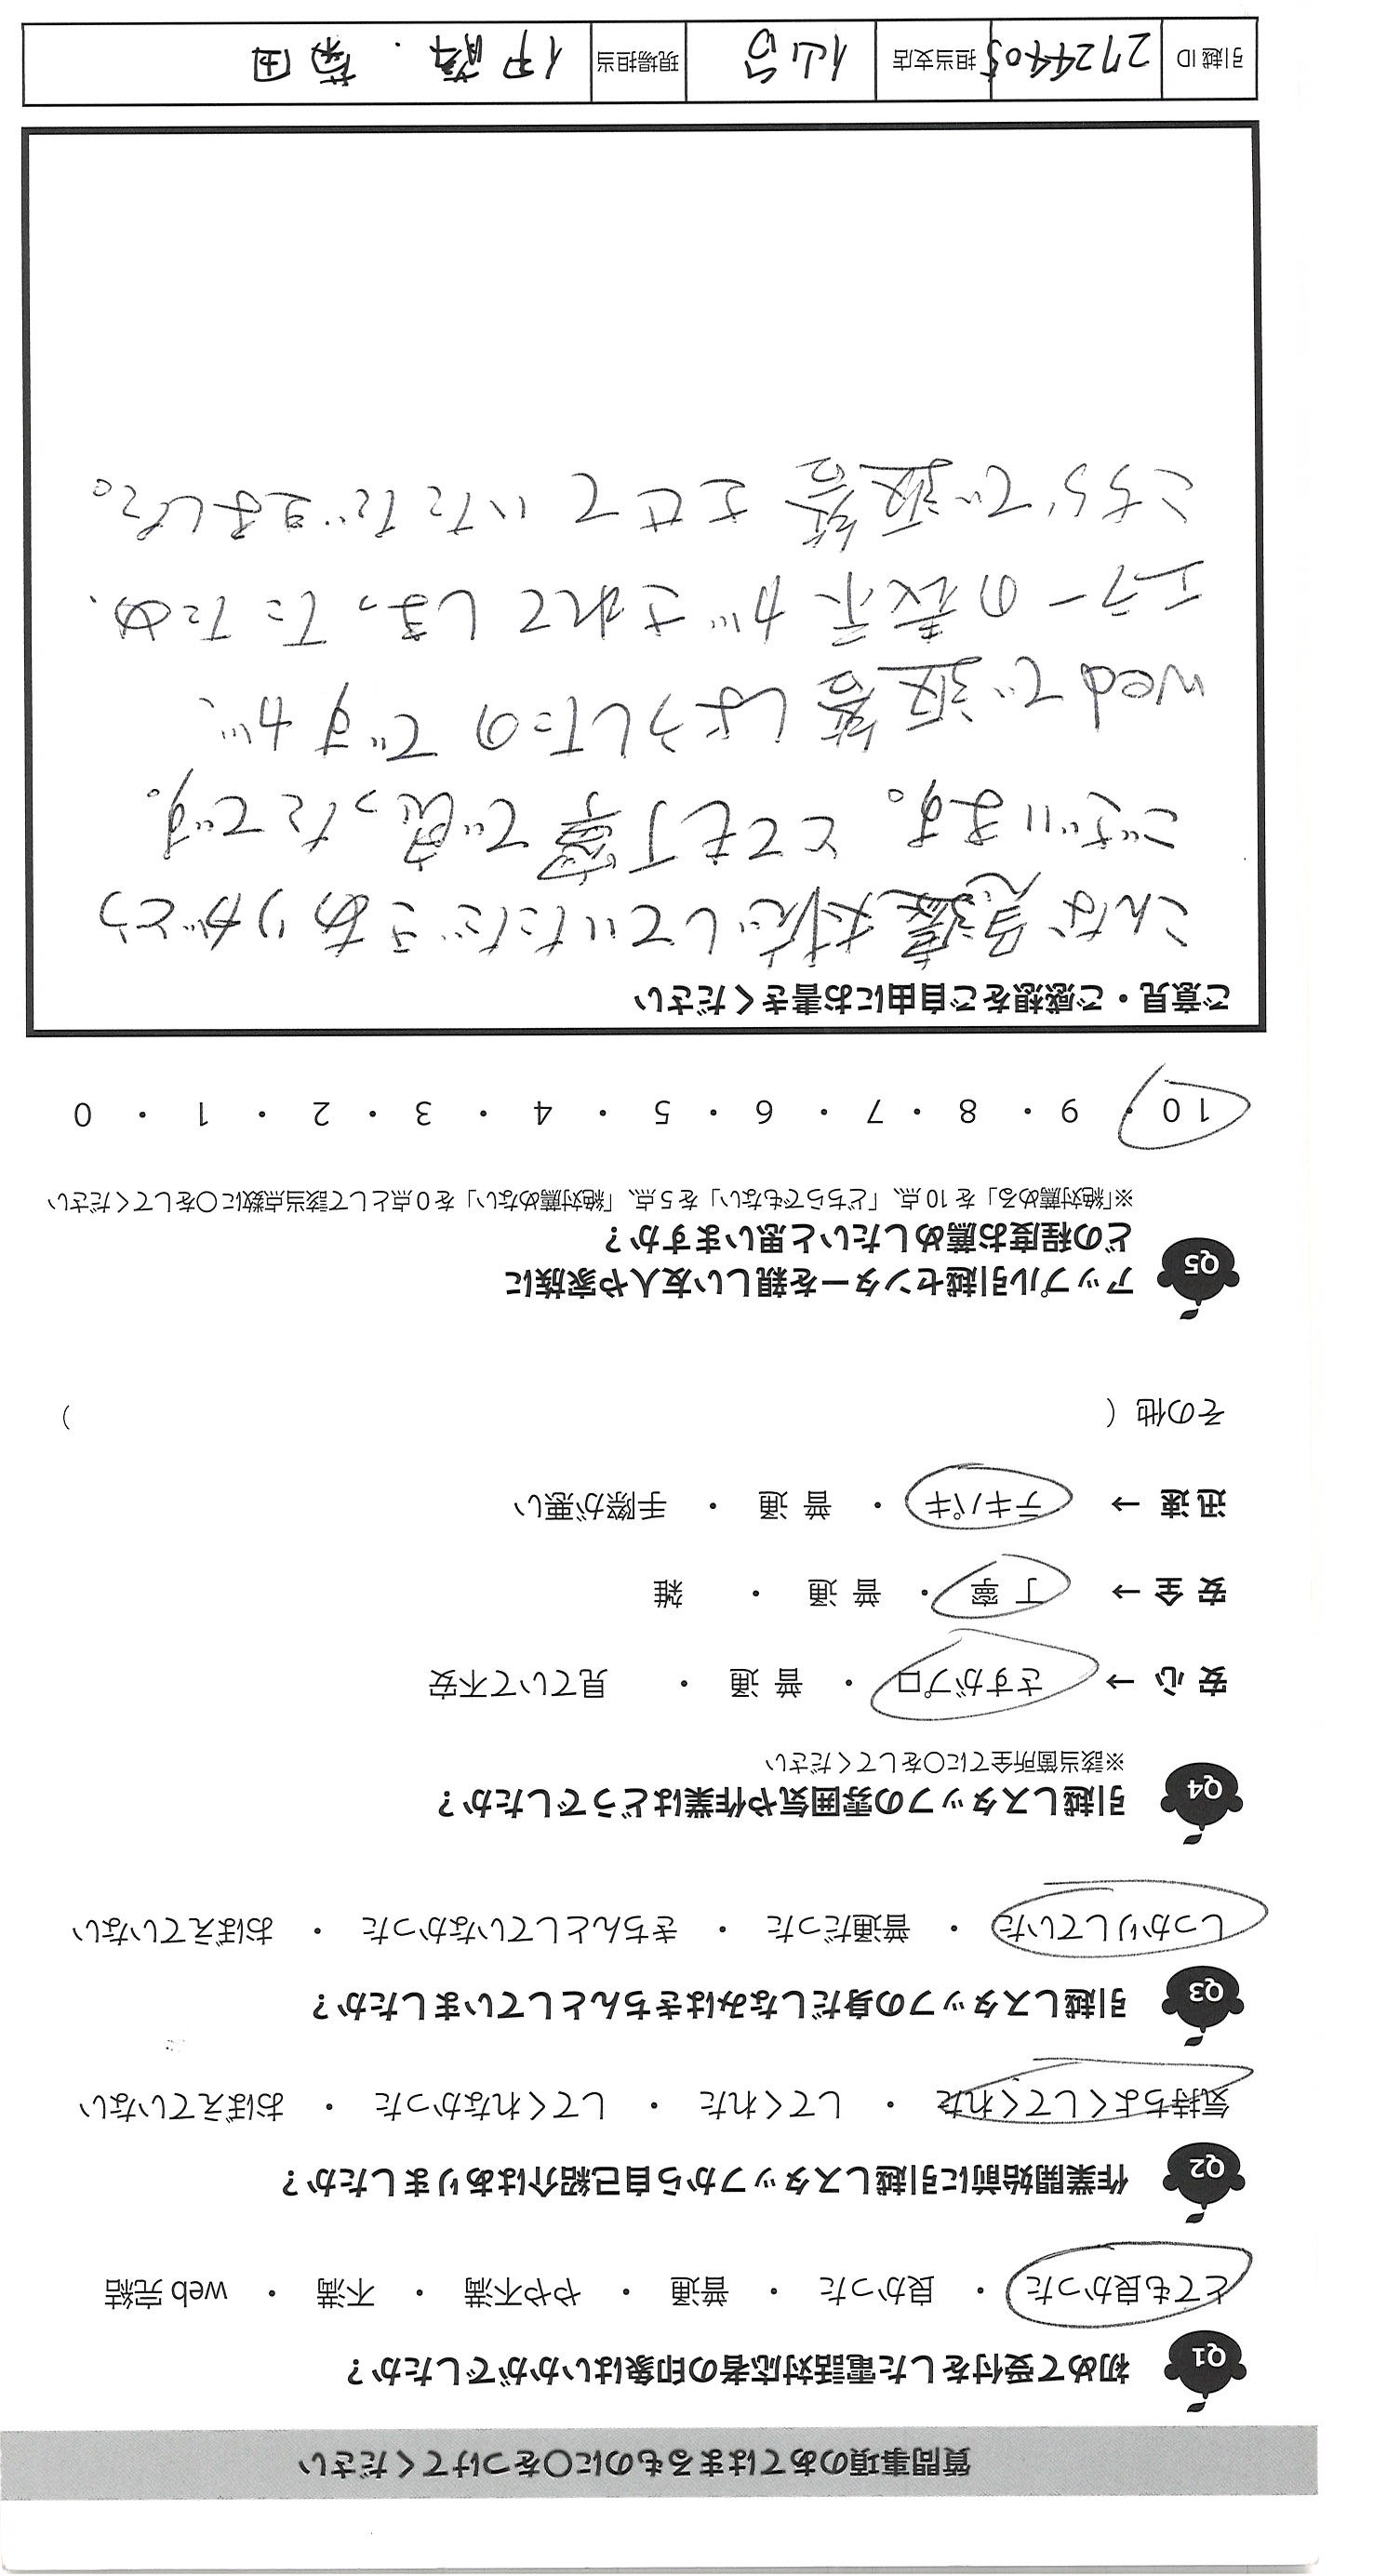 質問事項のあてはまるものに〇をつけてください
Q1 初めて受付をした電話対応者の印象はいかがでしたか？
とても良かった ・ 良かった ・ 普通 ・ やや不満 ・ 不満 ・ web 完結
Q2 作業開始前に引越しスタッフから自己紹介はありましたか？
気持ちよくしてくれた ・ してくれた ・ してくれなかった ・ おぼえていない
Q3 引越しスタッフの身だしなみはきちんとしていましたか？
しっかりしていた ・ 普通だった ・ きちんとしていなかった ・ おぼえていない
Q4 引越しスタッフの雰囲気や作業はどうでしたか？
※該当箇所全てに〇をしてください
安 心 → さすがプロ ・ 普 通 ・ 見ていて不安
安 全 → 丁 寧 ・ 普 通 ・ 雑
迅 速 → テキパキ ・ 普 通 ・ 手際が悪い
その他（ ）
Q5 アップル引越センターを親しい友人や家族に
どの程度お薦めしたいと思いますか？
※「絶対薦める」を 10 点、「どちらでもない」を 5 点、「絶対薦めない」を 0 点として該当点数に〇をしてください
10 ・ 9 ・ 8 ・ 7 ・ 6 ・ 5 ・ 4 ・ 3 ・ 2 ・ 1 ・ 0
ご意見・ご感想をご自由にお書きください
こんな急遽対応していただきありがとう
ございます。とても丁寧で良かったです。
wedで返答しようしたのですが、
エラーの表示がされてしまってため、
こちらで返答させていただきました。
引越 ID 2724405 担当支店 仙台 現場担当 伊藤・菊田